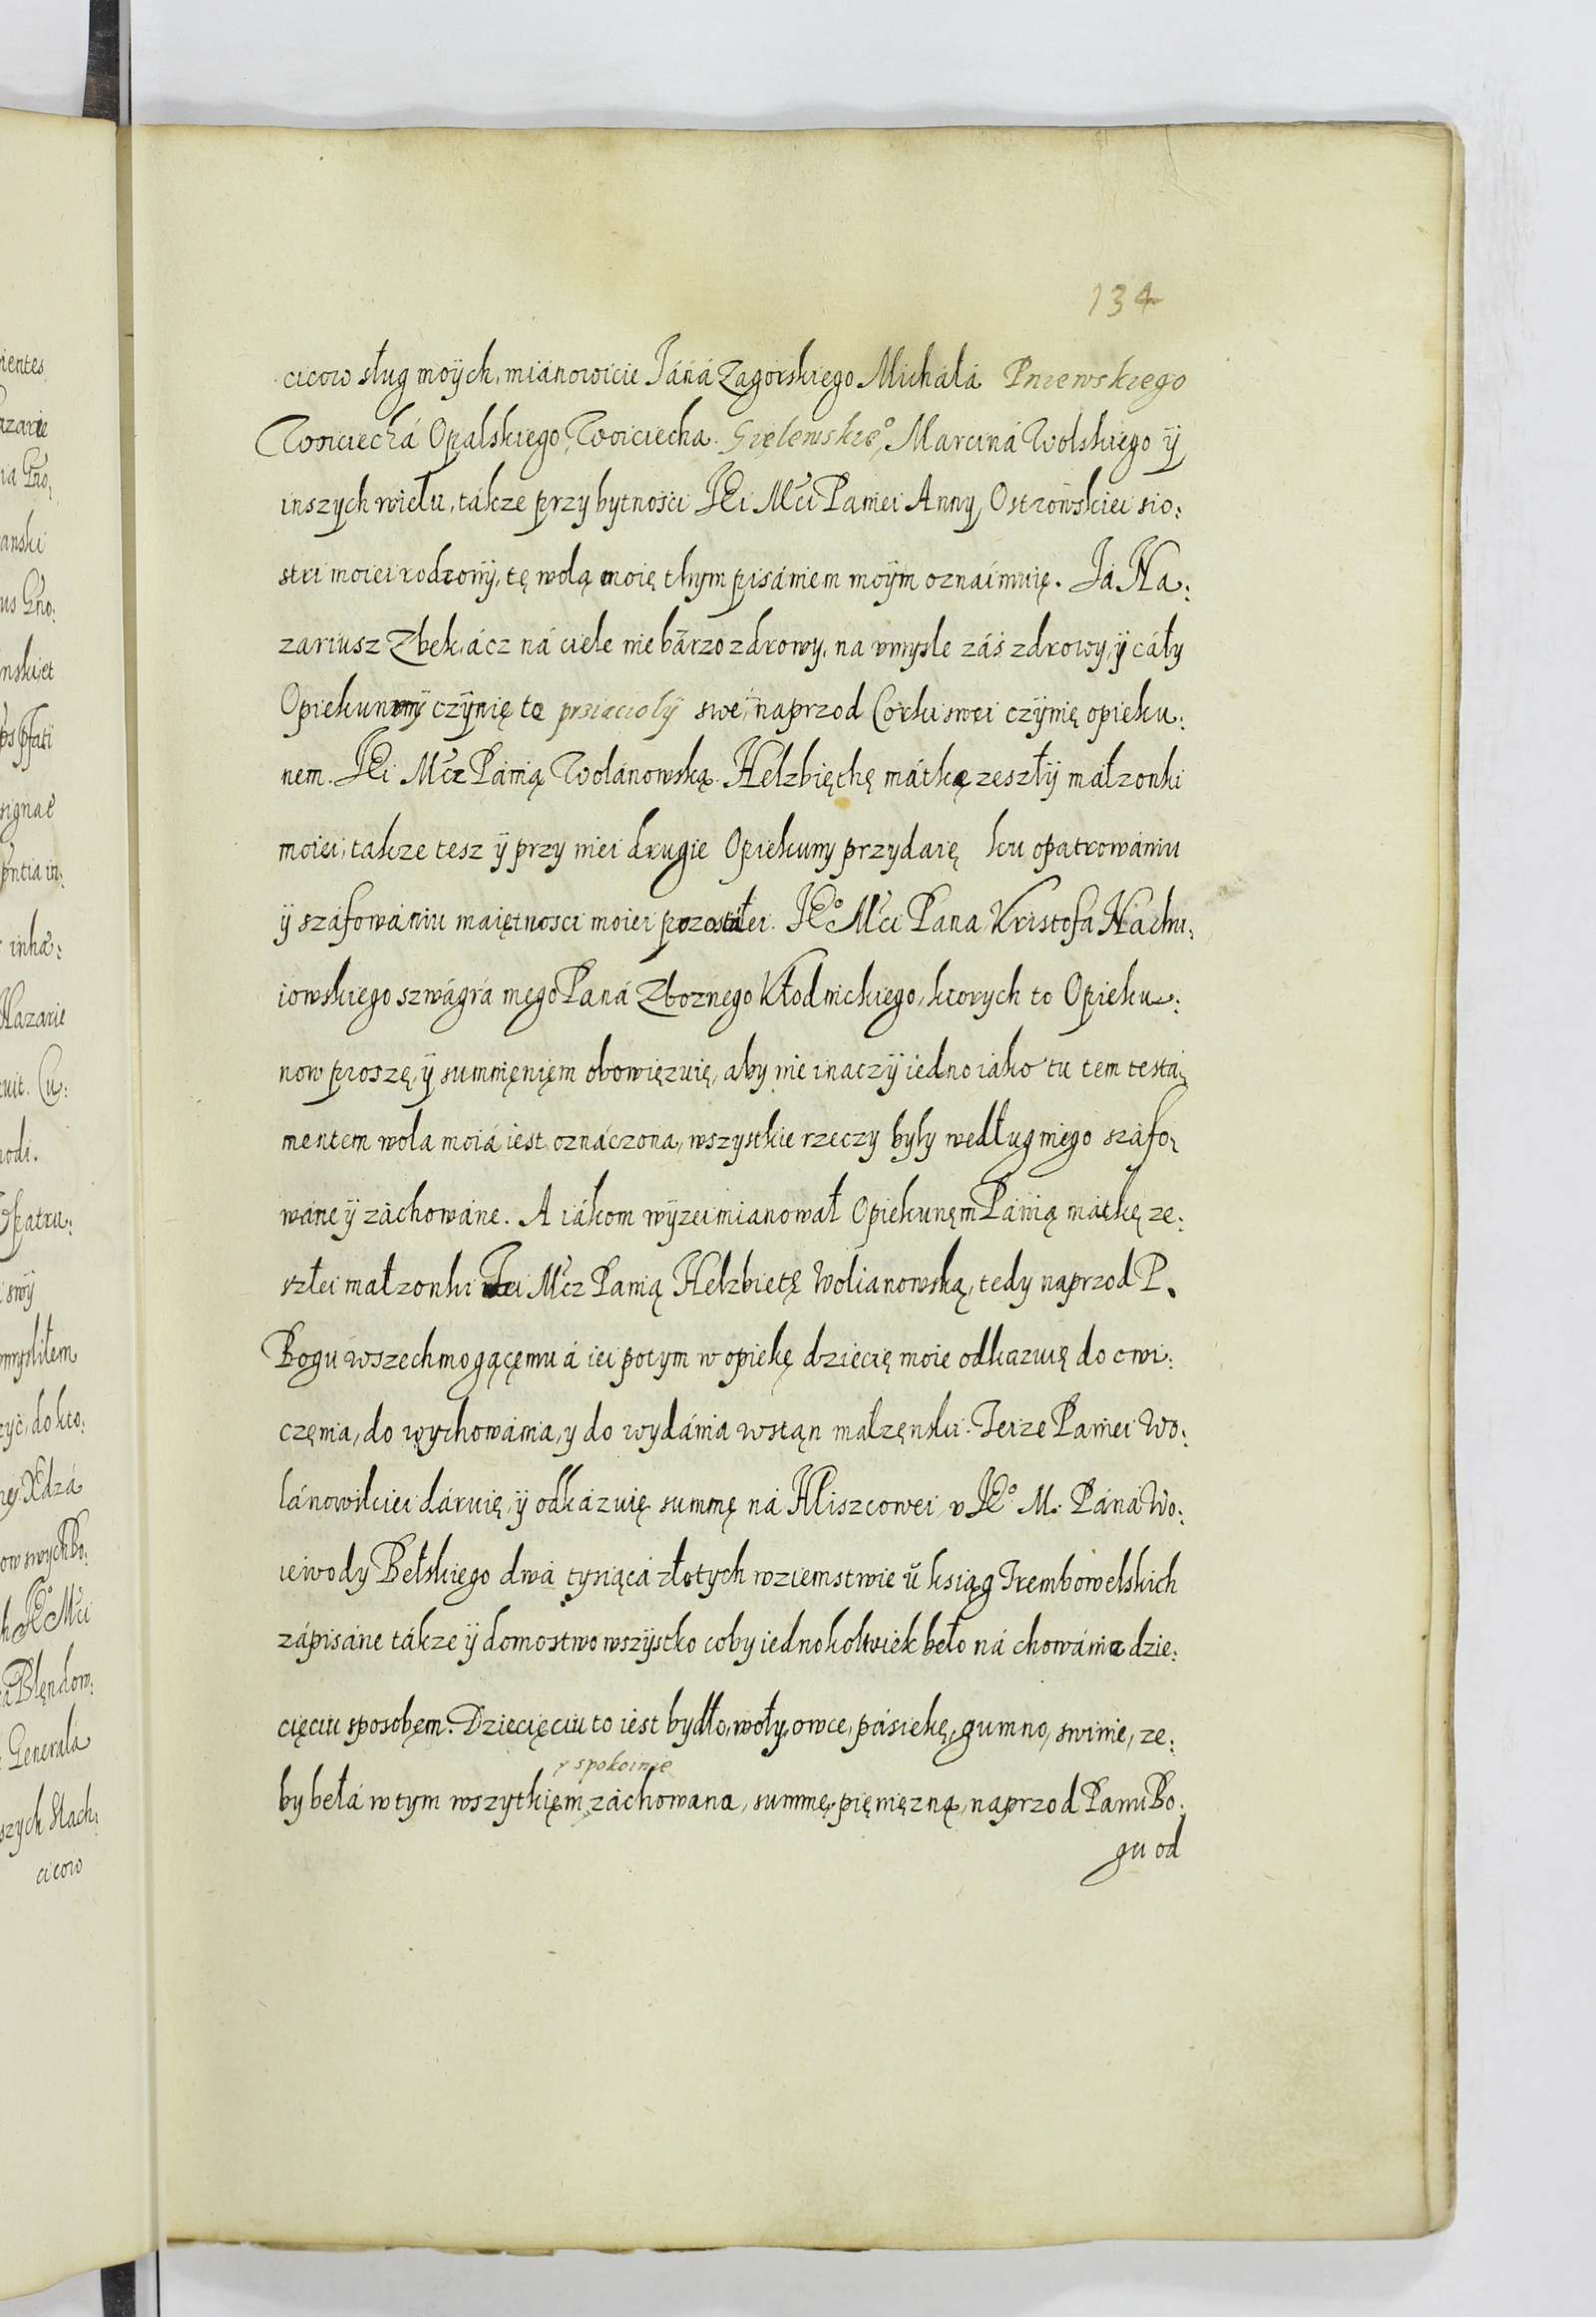 134
cicow sług moÿch, mianowicie Jáná Zagorskiego Michała Pniewskiego
Woiciechá Opalskiego, Woiciecha Gielewskieº, Marciná Wolskiego ÿ
inszych wielu, tákze przy bytnosci JEi Mci Paniei Anny Ostrowskiei sio:
stri moiei rodzonÿ, tę wolą moię thym pisániem moÿm oznaimuię. Já Na:
zariusz Zbek, ácz ná ciele nie bárzo zdrowy, na vmysle záś zdrowy ÿ cáły
Opiekunmÿ czÿnię te prziacioly swe, naprzod Corki swei czynię opieku:
nem JEi Mcz Pánią Wolánowską Helzbięthę mátkę zeszłÿ małzonki
moiei, takze tesz ÿ przy niei drugie Opiekuny przydaię ku opatrowániu
ÿ száfowániu maiętnosci moiei pozostałei. JEº Mci Pana Kristofa Nachu:
iowskiego szwágrá mego Paná Zboznego Kłodnickiego, ktorych to Opieku:
now proszę, ÿ sumnięnięm obowięzuię, aby nie ináczÿ iedno iáko tu tem testá:
mentem wola moiá iest oznáczona, wszystkie rzeczy były według niego száfo:
wáne ÿ záchowáne. A iákom wÿzei mianował Opiekunęm Pánią matkę ze:
szłei małzonki Jei Mcz Panią Helzbietę Wolianowską, tedy naprzod P.
Bogu wszechmogącęmu á iei potym w opiekę dziecię moie odkazuię do cwi:
częnia, do wychowánia, y do wydánia wstąn malzęnski. Teize Paniei Wo:
lánowskiei dáruię, ÿ odkázuię summę ná Hliszcowei v JEº M. Páná Wo:
iewody Bełskiego dwá tysiąca złotych wziemstwie ŭ ksiąg Trembowelskich
zápisáne tákze ÿ domostwo wszÿstko coby iednokolwiek beło ná chowánie dzie:
cięciu sposobęm. Dziecięciu to iest bydło, woły, owce, pásiekę, gumno, swinie, ze:
y spokoinie
by bełá w tym wszytkięm záchowana, summę pięnięzną, naprzod Panu Bo:
gu od